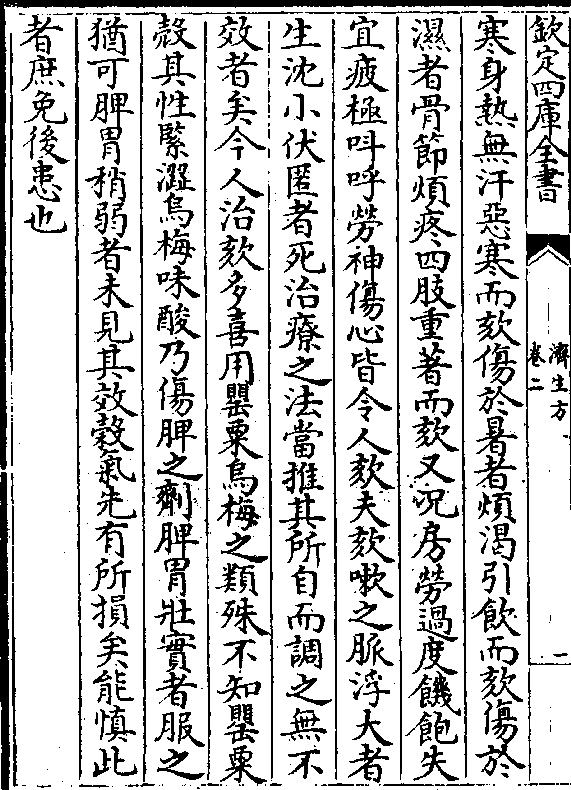 欽定四庫全書
濟生方
卷二
一
寒身熱無汗惡寒而欬傷於暑者煩渴引飲而欬傷於
濕者骨節煩疼四肢重著而欬又况房勞過度饑飽失
宜疲極呌呼勞神傷心皆令人欬夫欬嗽之脈浮大者
生沈小伏匿者死治療之法當推其所自而調之無不
效者矣今人治欬多喜用罌粟烏梅之類殊不知罌粟
殻其性緊澀烏梅味酸乃傷脾之劑脾胃壯實者服之
猶可脾胃稍弱者未見其效穀氣先有所損矣能慎此
者庶免後患也